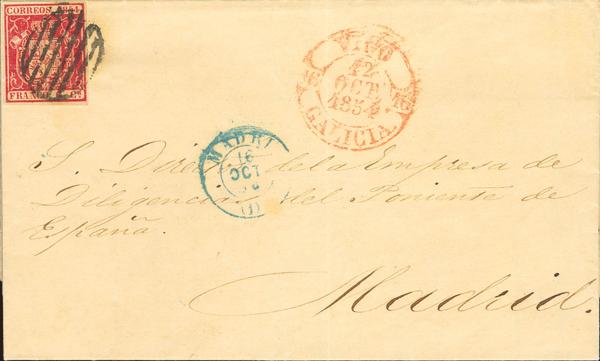 CORREOS 1854
FRAN
VIGO
12
OCT
1854
GALICIA
MADRI
16
OCT
(1)
S. Director de la Empresa de
Diligencias del Poniente de
España.
Madrid.